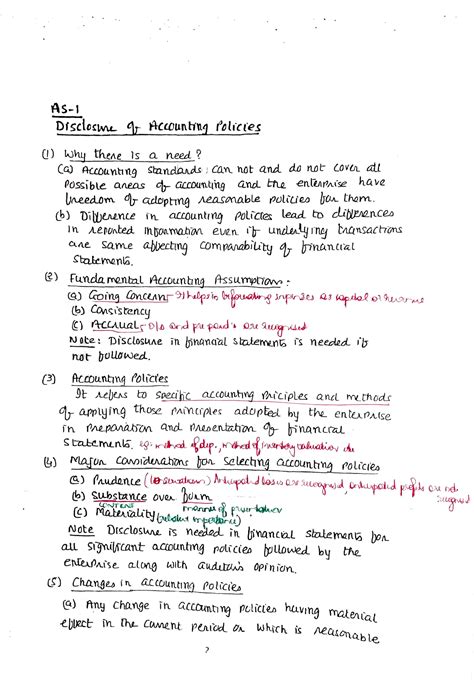 AS-1
Disclosure of Accounting Policies
(1) Why there is a need?
(a) Accounting standards: can not and do not cover all
possible areas of accounting and the enterprise have
freedom of adopting reasonable policies for them.
(b) Difference in accounting policies lead to differences
in reported information even if underlying transactions
are same affecting comparability of financial
statements.
(2) Fundamental Accounting Assumption:
(a) Going Concern: It helps in bifurcating expenses as capital or revenue
(b) Consistency
(c) Accrual: O/s and prepaid's are recognised
Note: Disclosure in financial statements is needed if
not followed.
(3) Accounting Policies
It refers to specific accounting principles and methods
of applying those principles adopted by the enterprise
in preparation and presentation of financial
statements. eg: method of dep., method of inventory valuation etc
(4) Major Considerations for selecting accounting policies
(a) Prudence Anticipated losses are recognised, anticipated profits are not recognised
(b) Substance over form
content manner of presentation
(c) Materiality (relative importance)
Note Disclosure is needed in financial statements for
all significant accounting policies followed by the
enterprise along with auditors opinion.
(5) Changes in accounting policies
(a) Any change in accounting policies having material
effect in the current period or which is reasonable